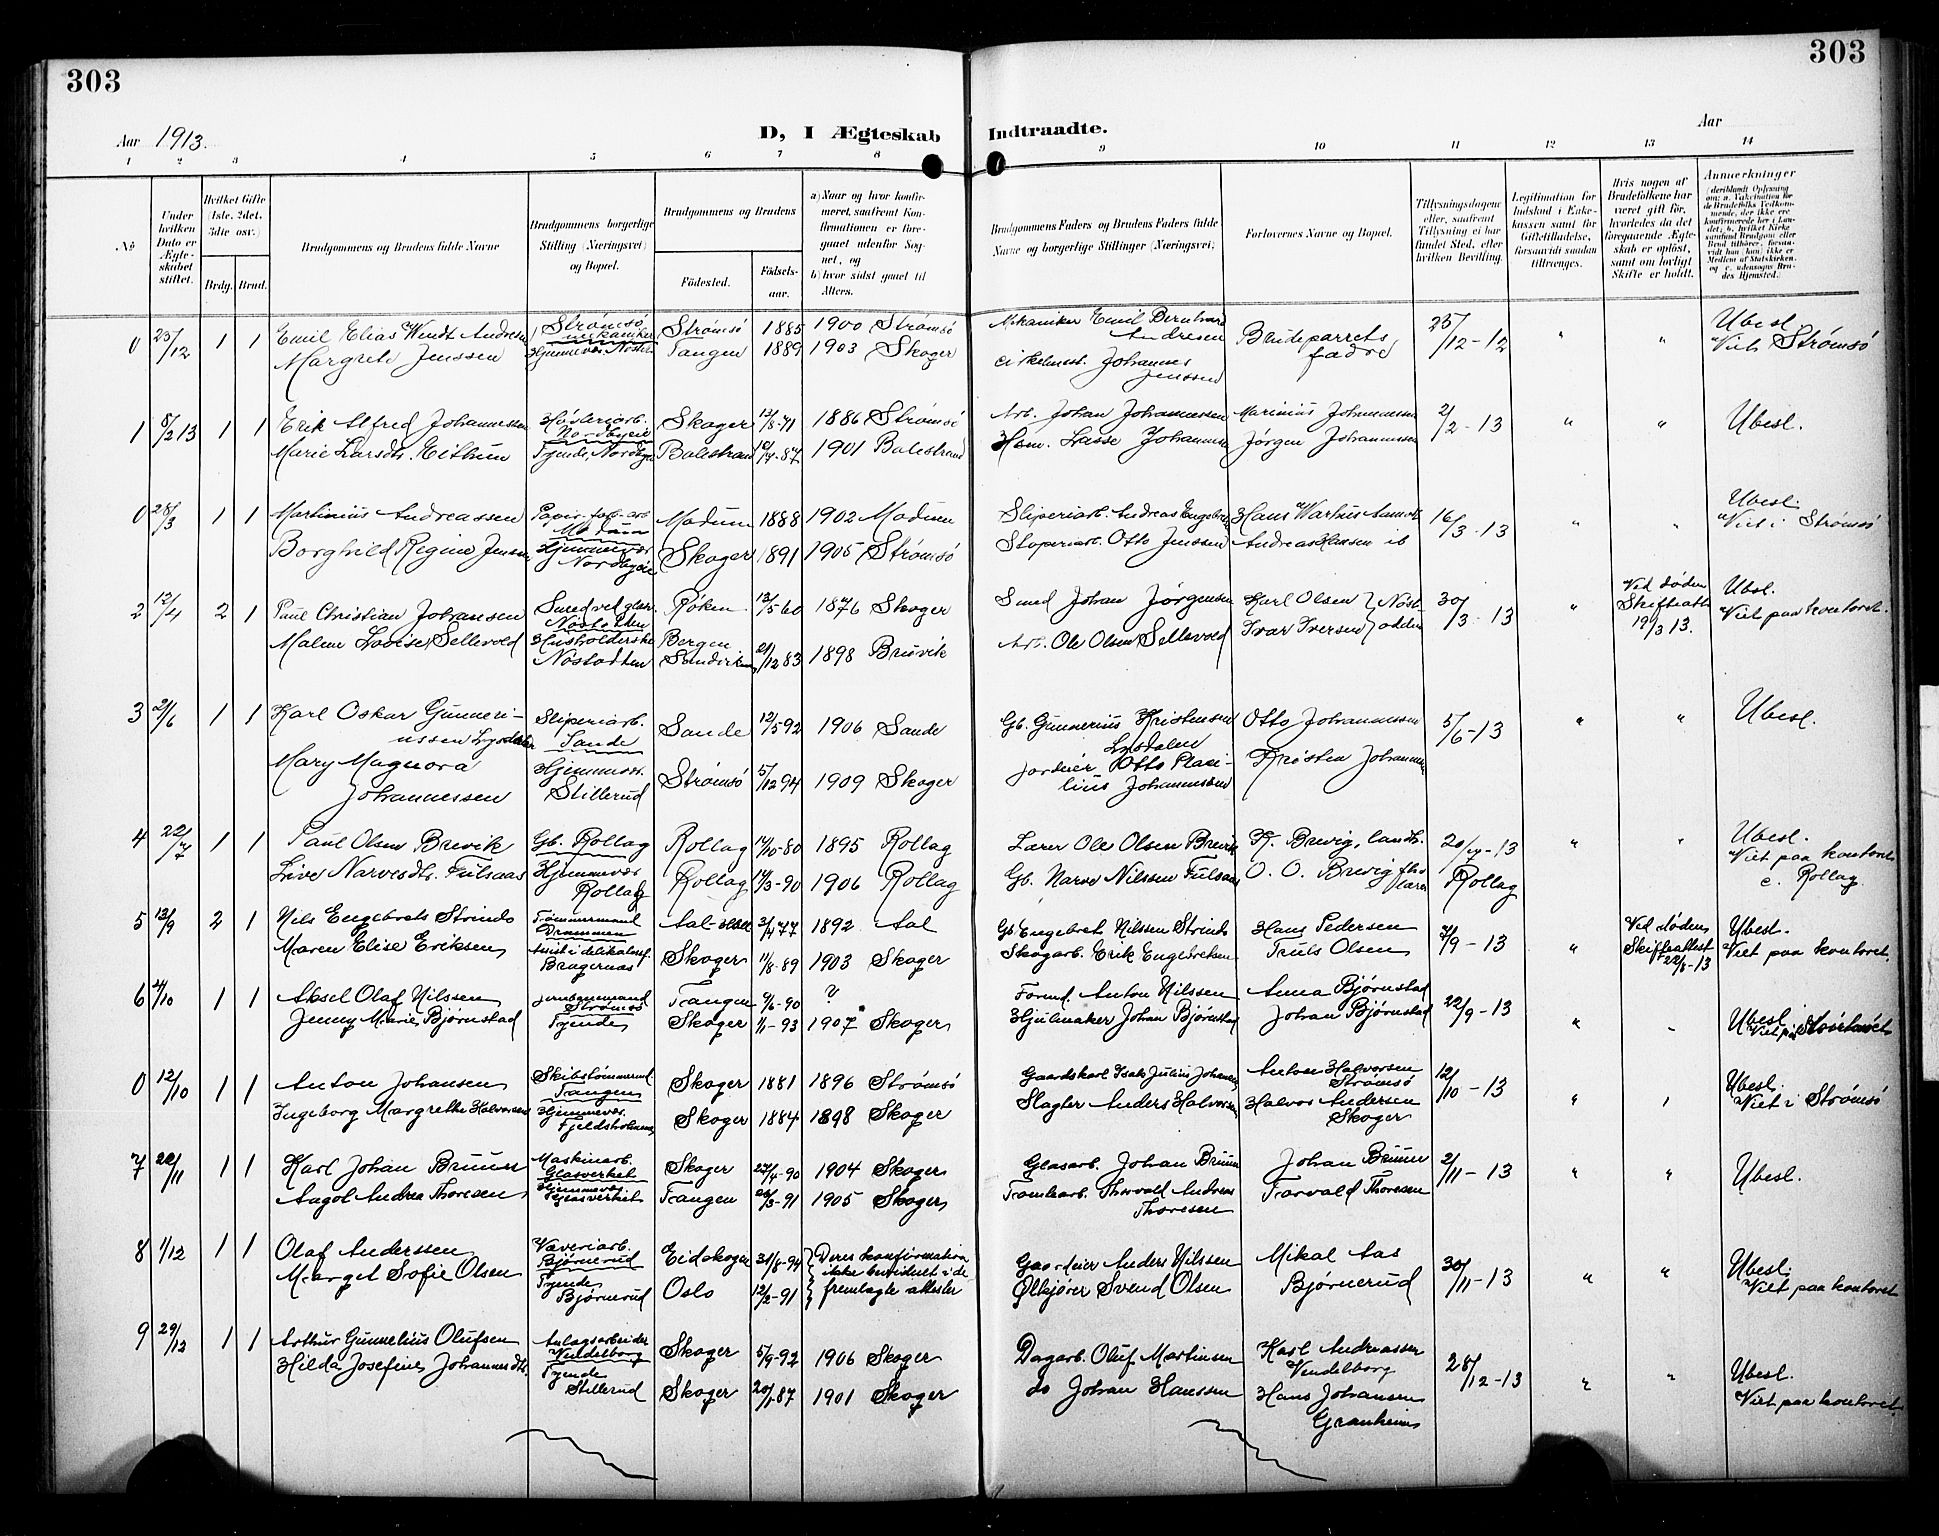 303
303
Aar 1913.
D, I Ægteskab Indtraadte.
Aar
1 2 3 4 5 6 7 8 9 10 11 12 13 14
No
Under hvilken Dato er Ægteskabet stiftet.
Hvilket Gifte (1ste, 2det, 3die osv.)
Brdg. Brud.
Brudgommens og Brudens fulde Navne
Brudgommens borgerlige Stilling (Næringsvei) og Bopæl.
Brudgommens og Brudens
Fødested.
Fødselsaar.
a) Naar og hvor konfirmeret, saafremt Konfirmationen er foregaaet udenfor Sognet, og
b) hvor sidst gaaet til Alters.
Brudgommens Faders og Brudens Faders fulde Navne og borgerlige Stillinger (Næringsvei)
Forlovernes Navne og Bopæl.
Tillysningsdagene eller, saafremt Tillysning ei har fundet Sted, efter hvilken Bevilling.
Legitimation for Indskud i Enkekassen samt for Giftetilladelse, forsaavidt saadan tiltrænges.
Hvis nogen af Brudefolkene har været gift før, hvorledes da det foregaaende Ægteskab er opløst, samt om lovligt Skifte er holdt.
Anmerkninger
0 25/12 1 1 Emil Elias Windt Andresen Strømsö mekaniker Strømsö 1885 1900 Strømsö Mekaniker Emil Bernhard Andresen Brudeparrets fædre 25/12-12 " " Ubesl. Viet Strømsö
Margrete Jenssen Hjemmevær. Nøsted Tangen 1889 1903 Skoger Johannes Jenssen
1 8/2 13 1 1 Erik Alfred Johannessen Nordbyeie Skoger 13/8-71 1886 Strømsö Arb. Johan Johannessen Marinius Johannessen 2/2-13 " " Ubesl.
Marie Larsdtr. Eithun Tjende, Nordbye Balestrand 10/7-87 1901 Balestrand Lasse Johannessen Jørgen Johannessen
0 28/3 1 1 Martinius Andreassen Papirfab. arb. Modum Modum 1888 1902 Modum Sliperiarb. Andreas Engebretsen Hans Warhus 16/3-13 " " Ubesl. Viet i Strømsö
Borghild Regine Jensen Hjemmevær Nordbyeie Skoger 1891 1905 Strømsö Otto Jenssen Andreas Hansen ib
2 12/4 2 1 Paul Christian Johansen Smed ved glasv. Nøstodden Røken 13/5 60 1876 Skoger Smed Johan Jørgensen Karl Olsen 30/3-13 " Ved døden Skifteatt. 19/3 13. Ubesl. Viet paa kontoret.
Malene Lovise Sellevold Husholderske Nøstodden Bergen Sandviken 21/12 83 1898 Bruvik Arb. Ole Olsen Sellevold Ivar Iversen Nøstodden
3 2/6 1 1 Karl Oskar Gunneriussen Lysdalen Sliperiarb. Sande Sande 12/5 92 1906 Sande Gb. Gunnerius Kristensen Lysdalen Otto Johannessen 5/6-13 " " Ubesl.
Mary Magnora Johannessen Hjemmevær. Stillerud Strømsö 5/12 94 1909 Skoger Jordeier Otto Johannessen Kristen Johannessen
4 22/7 1 1 Paul Olsen Brevik Gb. Rollag Rollag 14/10-80 1895 Rollag Lærer Ole Olsen Brevik K. Brevig, landh. 20/7-13 " " Ubesl. Viet paa kontoret
Live Narvesdtr. Fulsaas Hjemmevær Rollag Rollag 14/3-90 1906 Rollag Gb. Narve Nilssen Fulsaas O. O. Brevig Rollag c. Rollag.
5 13/9 2 1 Nils Engebrets Strind Tømmermand Drammen Aal 3/4 77 1892 Aal Gb Engebret Nilssen Strind Hans Pedersen 7/9-13 " Ved døden Skifteattest 22/8-13 Ubesl. Viet paa kontoret.
Maren Elise Eriksen Bragernæs Skoger 11/8-89 1903 Skoger Skogarb. Erik Engebretsen Truls Olsen
6 4/10 1 1 Aksel Olaf Nilssen Jernbanemand Strømsö Tangen 9/6-90 ? Formd. Anton Nilssen Anna Bjørnstad 22/9-13 " " Ubesl.
Jenny Marie Bjørnstad Tjende Skoger 1/1-93 1907 Skoger Hjulmaker Johan Bjørnstad Johan Bjørnstad
0 12/10 1 1 Anton Johansen Skibstømmermd Tangen Skoger 1881 1896 Strømsö Gaardskarl Isak Julius Johansen Anton Halvorsen Strømsö 12/10-13 " " Ubesl. Viet i Strømsö
Ingeborg Margrethe Halvorsen Hjemmevær. Fjeldsholmen Skoger 1884 1898 Skoger Slagter Anders Halvorsen Halvor Andersen Skoger
7 22/11 1 1 Karl Johan Bruun Maskinarb. Glasverket Skoger 27/4-90 1904 Skoger Glasarb. Johan Bruun Johan Bruun 2/11-13 " " Ubesl.
Aagot Andrea Thoresen Hjemmevær. Glasverket Tangen 26/3-91 1905 Skoger Tomtearb. Thorvald Andreas Thoresen Torvald Thoresen
8 1/12 1 1 Olaf Anderssen Væveriarb. Bjørnerud Eidskogen 31/8-94 Deres konfirmation ikke bevidnet i de fremlagte attester Gaardeier Anders Nilssen Mikal Aas 30/11-13 " " Ubesl. Viet paa kontoret
Marget Sofie Olsen Tjende Bjørnerud Oslo 12/2-91 Ølkjører Svend Olsen Bjørnerud
9 29/12 1 1 Arthur Gunnelius Olufsen Anlægsarbeider Vindelborg Skoger 5/9-92 1906 Skoger Dagarb. Oluf Martinsen Karl Andreassen Vindelborg 28/12-13 " " Ubesl. Viet paa kontoret
Hilda Josefine Johannesdtr. Tjende Stillerud Skoger 20/1-87 1901 Skoger do Johan Hanssen Hans Johansen Granheim